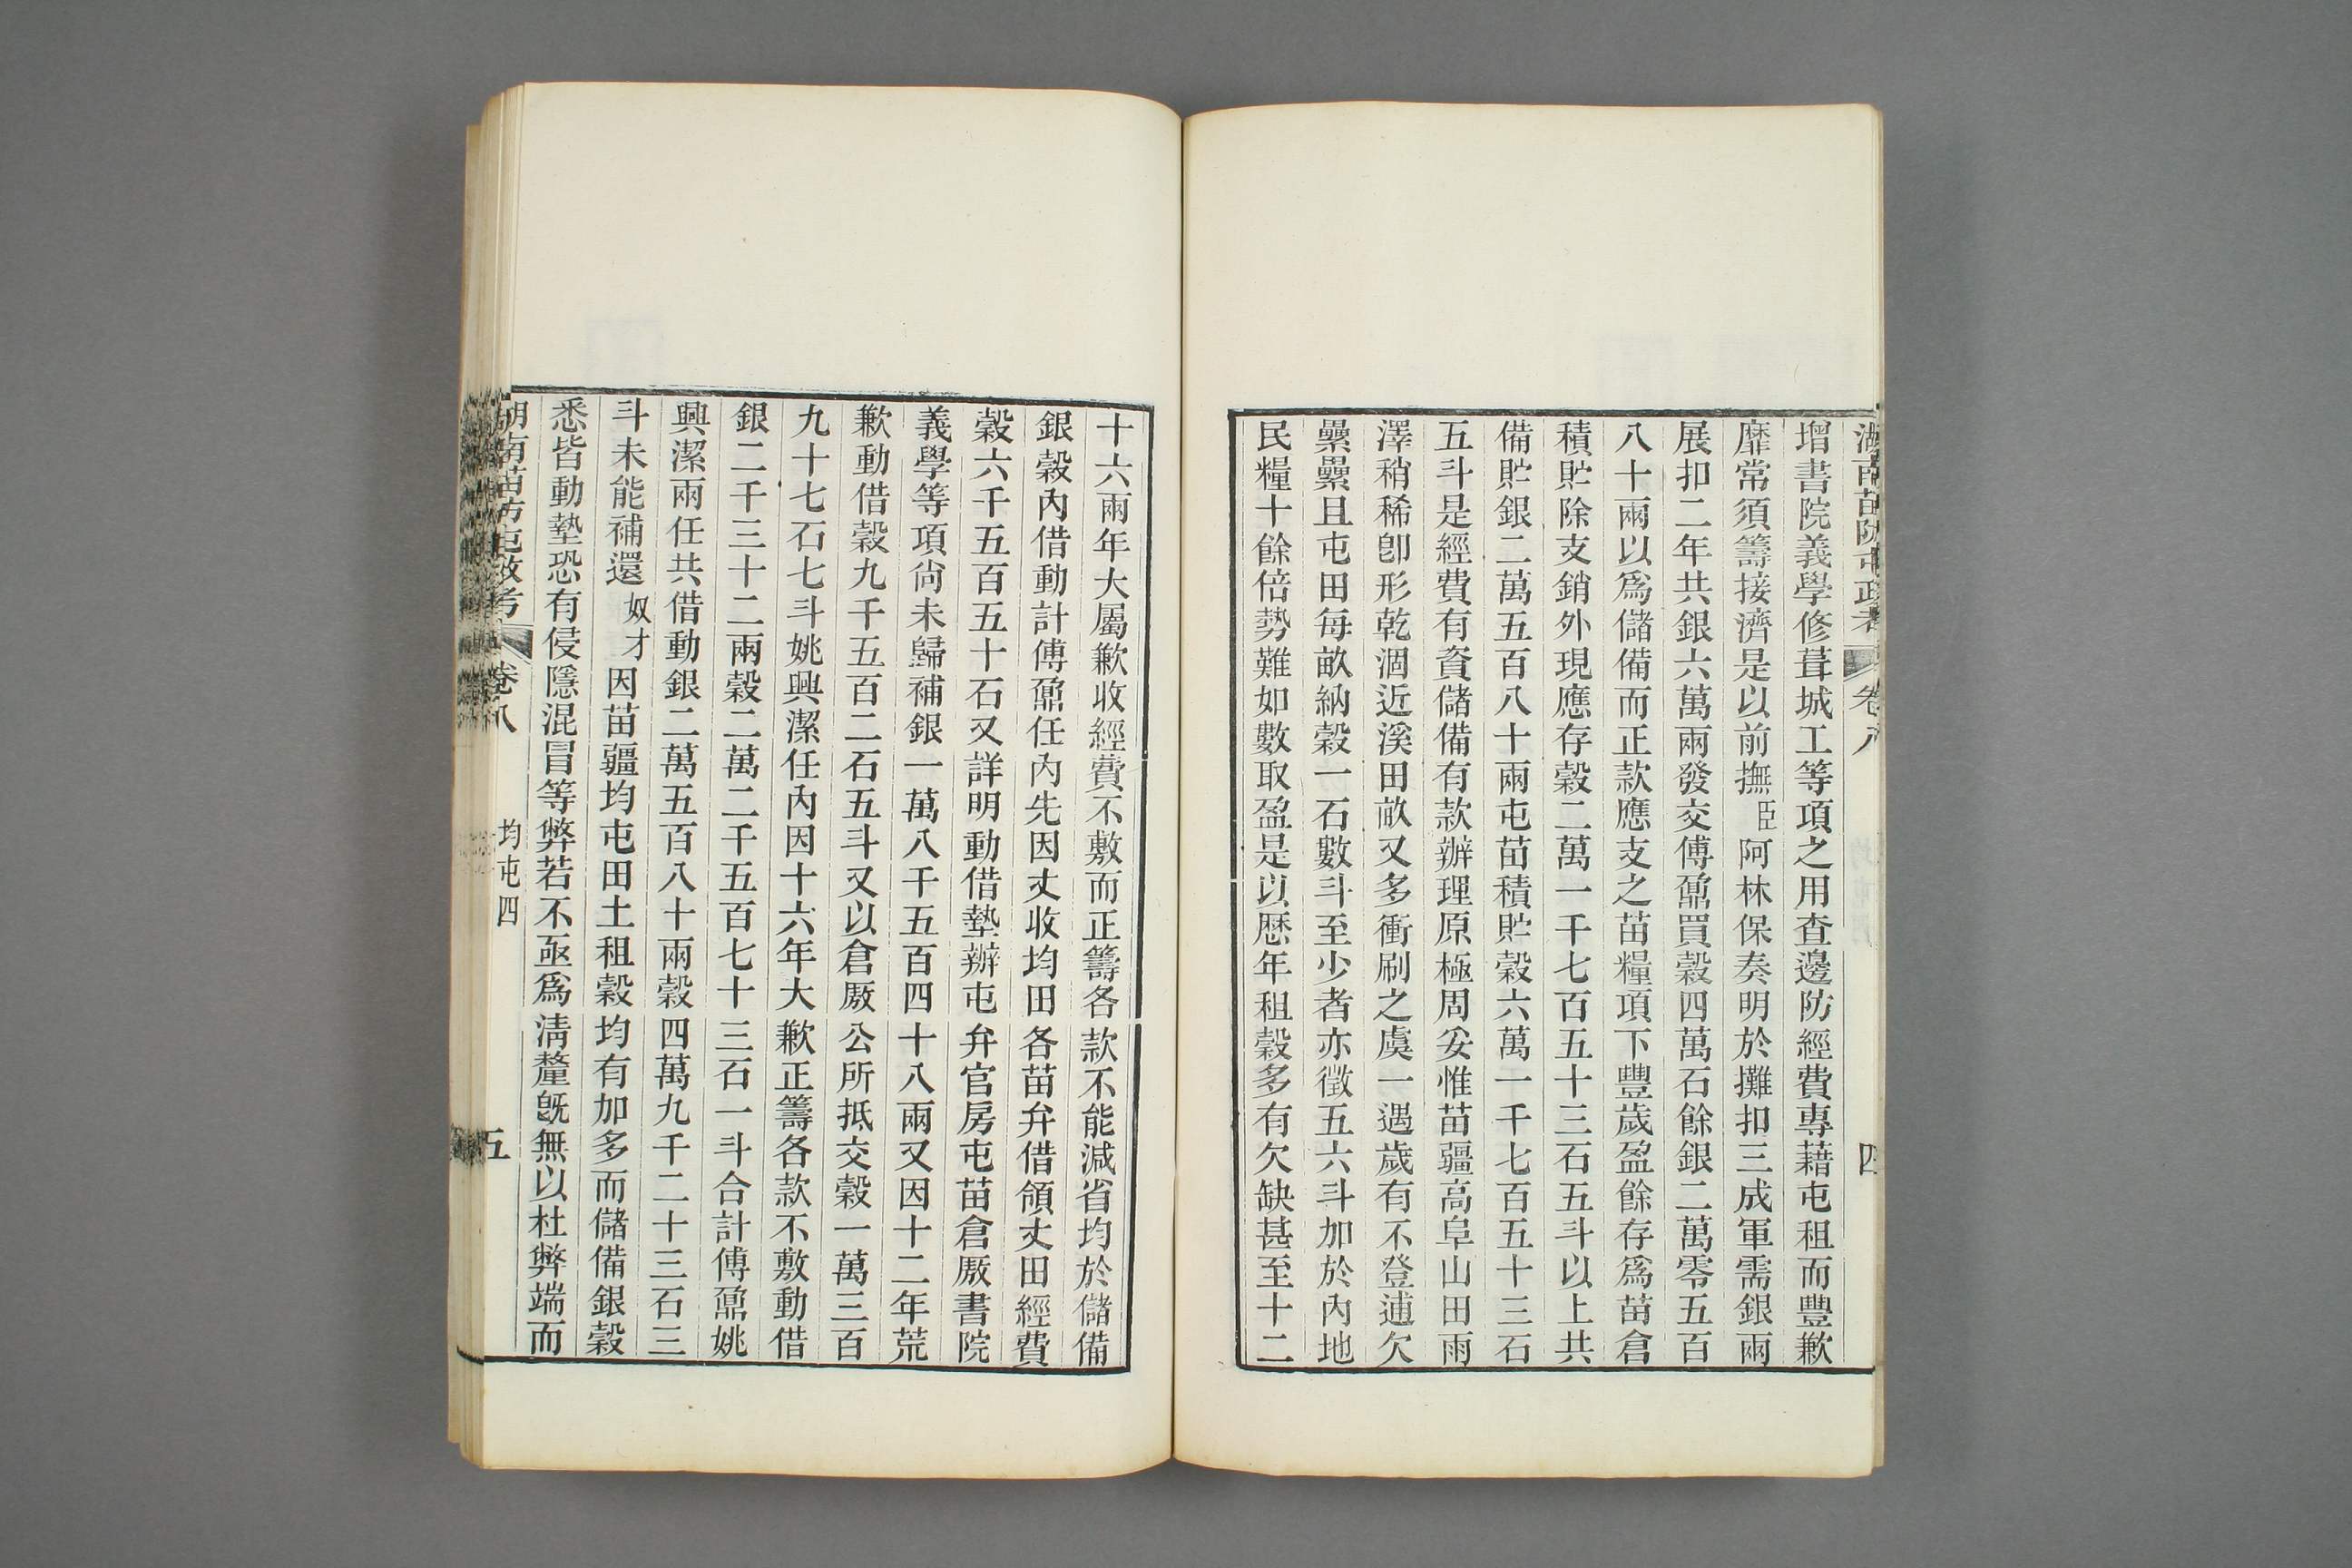 湖南苗防屯政考 卷八 四
增書院義學修葺城工等項之用查邊防經費專藉屯租而豐歉
靡常須籌接濟是以前撫臣阿林保奏明於攤扣三成軍需銀兩
展扣二年共銀六萬兩發交傅鼐買穀四萬石餘銀二萬零五百
八十兩以爲儲備而正款應支之苗糧項下豐歲盈餘存爲苗倉
積貯除支銷外現應存穀二萬一千七百五十三石五斗以上共
備貯銀二萬五百八十兩屯苗積貯穀六萬一千七百五十三石
五斗是經費有資儲備有款辦理原極周妥惟苗疆高阜山田雨
澤稍稀卽形乾涸近溪田畝又多衝刷之虞一遇歲有不登逋欠
纍纍且屯田每畝納穀一石數斗至少者亦徵五六斗加於內地
民糧十餘倍勢難如數取盈是以歷年租穀多有欠缺甚至十二
十六兩年大屬歉收經費不敷而正籌各款不能減省均於儲備
銀穀內借動計傅鼐任內先因丈收均田各苗弁借領丈田經費
穀六千五百五十石又詳明動借墊辦屯弁官房屯苗倉厫書院
義學等項尙未歸補銀一萬八千五百四十八兩又因十二年荒
歉動借穀九千五百二石五斗又以倉厫公所抵交穀一萬三百
九十七石七斗姚興潔任內因十六年大歉正籌各款不敷動借
銀二千三十二兩穀二萬二千五百七十三石一斗合計傅鼐姚
興潔兩任共借動銀二萬五百八十兩穀四萬九千二十三石三
斗未能補還奴才因苗疆均屯田土租穀均有加多而儲備銀穀
悉皆動墊恐有侵隱混冒等弊若不亟爲淸釐旣無以杜弊端而
湖南苗防屯政考 卷八 均屯四 五